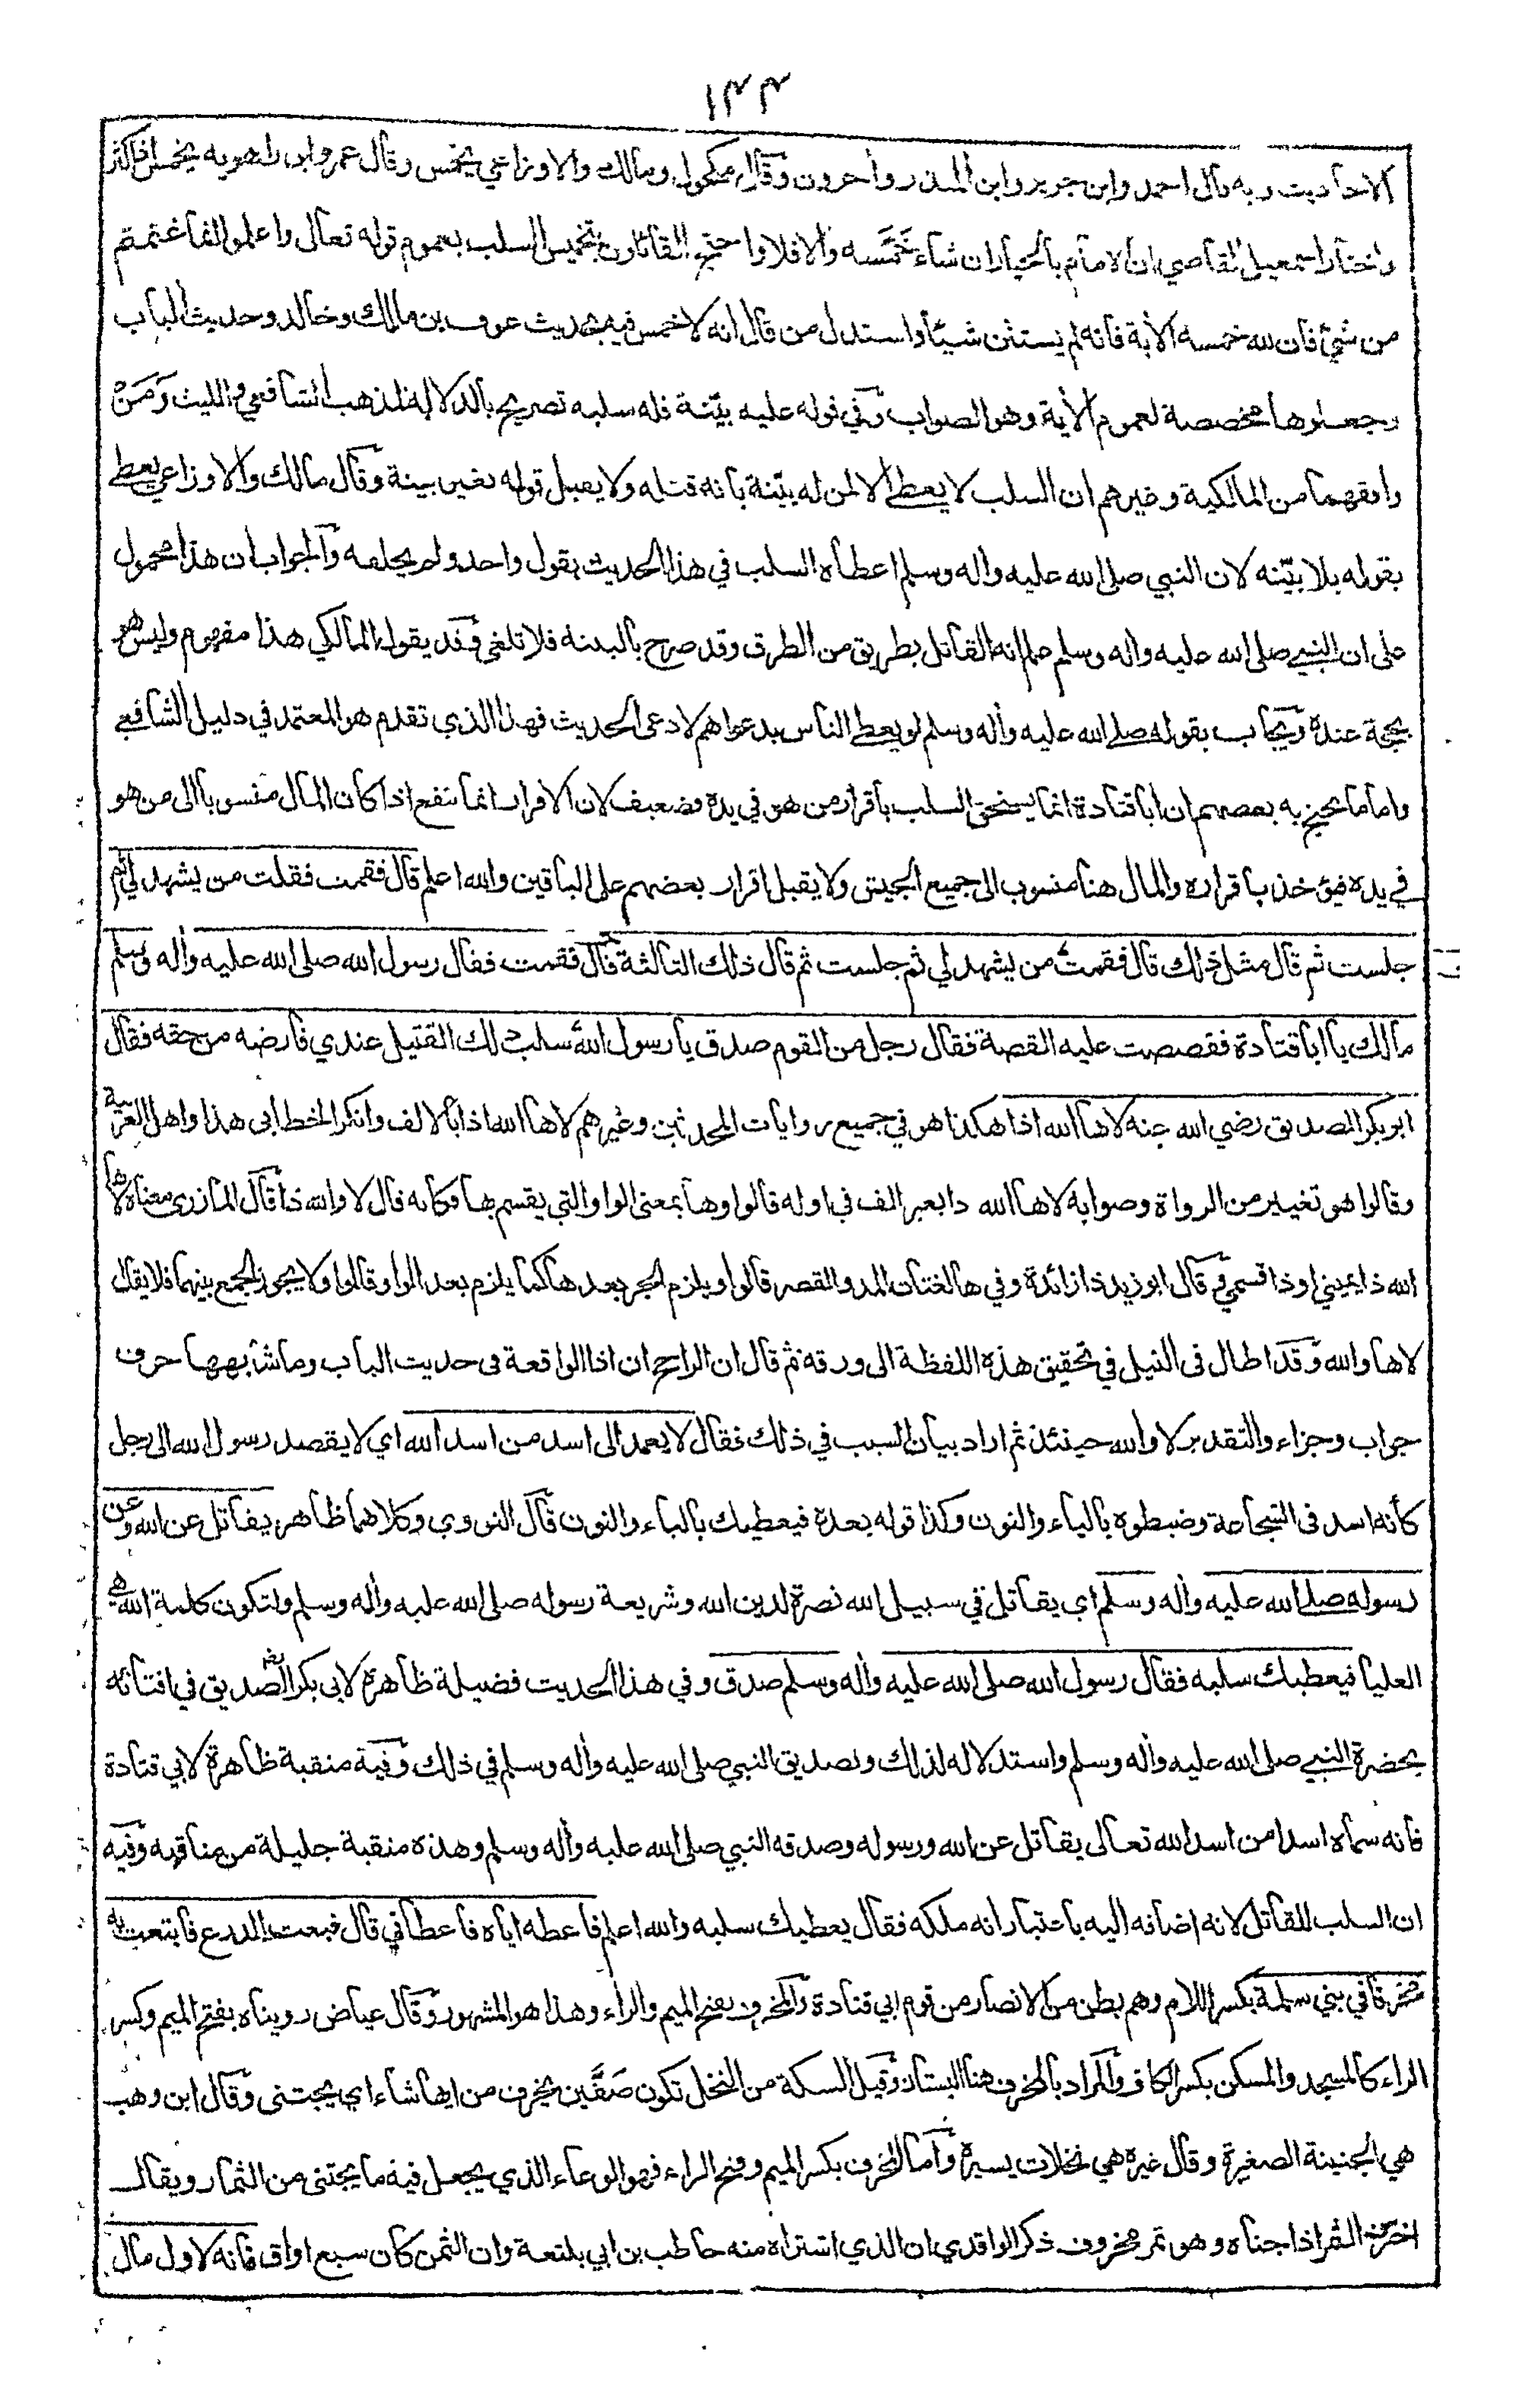 ١٣٣
الاحاديث وبه قال احمد وابن جرير وابن المنذر وأخرون وقال مكحول ومالك والاوزاعي يخمس وقال عمر وابن راهويه يخمس اذا كثر
واختار اسمعيل القاضي ان الامام بالخيار ان شاء خَمَّسه والا فلا واحتج القائلون بتخميس السلب بعموم قوله تعالى واعلموا انما غنمتم
من شئ فان لله خمسه الأية فانه لم يستثن شيئاً واستدل من قال انه لا خمس فيه بحديث عوف بن مالك وخالد وحديث الباب
وجعلوها مخصصة لعموم الأية وهو الصواب وفي قوله عليه بيّنة فله سلبه تصريح بالدلالة لمذهب الشافعي والليث وَمَنْ
وافقهما من المالكية وغيرهم ان السلب لا يعطى الا لمن له بيّنة بانه قتله ولا يقبل قوله بغير بينة وقال مالك والاوزاعي يعطى
بقوله بلا بيّنه لان النبي صلى الله عليه وأله وسلم اعطاه السلب في هذا الحديث بقول واحد ولم يحلفه والجواب ان هذا محمول
على ان النبي صلى الله عليه وأله وسلم علم انه القاتل بطريق من الطرق وقد صرح بالبينة فلا تلغى وقد يقول المالكي هذا مفهوم وليس هو
بحجة عنده ويجاب بقوله صلى الله عليه وأله وسلم لو يعطى الناس بدعواهم لادعى الحديث فهذا الذي تقدم هو المعتمد في دليل الشافعي
واما ما يحتج به بعضهم ان ابا قتادة انما يستحق السلب باقرار من هو في يده فضعيف لان الاقرار انما ينفع اذا كان المال منسوبا الى من هو
في يده فيؤخذ باقراره والمال هنا منسوب الى جميع الجيش ولا يقبل اقرار بعضهم على الباقين والله اعلم قال فقمت فقلت من يشهد لي ثم
جلست ثم قال مثل ذلك قال فقمت من يشهد لي ثم جلست ثم قال ذلك الثالثة قال فقمت فقال رسول الله صلى الله عليه وأله وسلم
مالك يا ابا قتادة فقصصت عليه القصة فقال رجل من القوم صدق يا رسول الله سلب ذلك القتيل عندي فارضه من حقه فقال
ابو بكر الصديق رضي الله عنه لاها الله اذا هكذا هو في جميع روايات المحدثين وغيرهم لاها الله اذا بالالف وانكر الخطابى هذا واهل العربية
وقالوا هو تغيير من الرواة وصوابه لاها الله ذا بغير الف في اوله قالوا وها بمعنى الواو التي يقسم بها فكانه قال لا والله ذا قال المازرى معناه لاها
الله ذا يميني او ذا قسمي وقال ابو زيد ذا زائدة وفي ها لغتان المد والقصر قالوا ويلزم الجر بعدها كما يلزم بعد الواو وقالوا ولا يجوز الجمع بينهما فلا يقال
لاها والله وقد اطال فى النيل في تحقيق هذه اللفظة الى ورقه ثم قال ان الراجح ان اذا الواقعة فى حديث الباب وما شابهها حرف
جواب وجزاء والتقدير لا والله حينئذ ثم اراد بيان السبب في ذلك فقال لا يعمد الى اسد من اسد الله اي لا يقصد رسول الله الى رجل
كأنه اسد فى الشجاعة وضبطوه بالياء والنون وكذا قوله بعده فيعطيك بالياء والنون قال النووي وكلاهما ظاهر يقاتل عن الله وعن
رسوله صلى الله عليه وأله وسلم اي يقاتل في سبيل الله نصرة لدين الله وشريعة رسوله صلى الله عليه وأله وسلم ولتكون كلمة الله هي
العليا فيعطيك سلبه فقال رسول الله صلى الله عليه وأله وسلم صدق وفي هذا الحديث فضيلة ظاهرة لابى بكر الصديق رض في افتائه
بحضرة النبي صلى الله عليه وأله وسلم واستدلاله لذلك وتصديق النبي صلى الله عليه وأله وسلم في ذلك وفيه منقبة ظاهرة لابي قتادة
فانه سماه اسدا من اسد الله تعالى يقاتل عن الله ورسوله وصدقه النبي صلى الله عليه وأله وسلم وهذه منقبة جليلة من مناقبه وفيه
ان السلب للقاتل لانه اضافه اليه باعتبار انه ملكه فقال يعطيك سلبه والله اعلم فاعطه اياه فاعطاني قال فبعت الدرع فابتعت به
مخرفا في بني سلمة بكسر اللام وهم بطن من الانصار من قوم ابي قتادة والمخرف بفتح الميم والراء وهذا هو المشهور وقال عياض رويناه بفتح الميم وكسر
الراء كالمسجد والمسكن بكسر الكاف والمراد بالمخرف هنا البستان وقيل السكة من النخل تكون صَفَّين يخرف من ايها شاء اي يجتنى وقال ابن وهب
هي الجنينة الصغيرة وقال غيره هي نخلات يسيرة وأما المخرف بكسر الميم وفتح الراء فهو الوعاء الذي يجعل فيه ما يجتنى من الثمار ويقال
اخترف الثمر اذا جناه وهو ثمر مخروف ذكر الواقدي ان الذي اشتراه منه حاطب بن ابي بلتعة وان الثمن كان سبع اواق فانه لاول مال